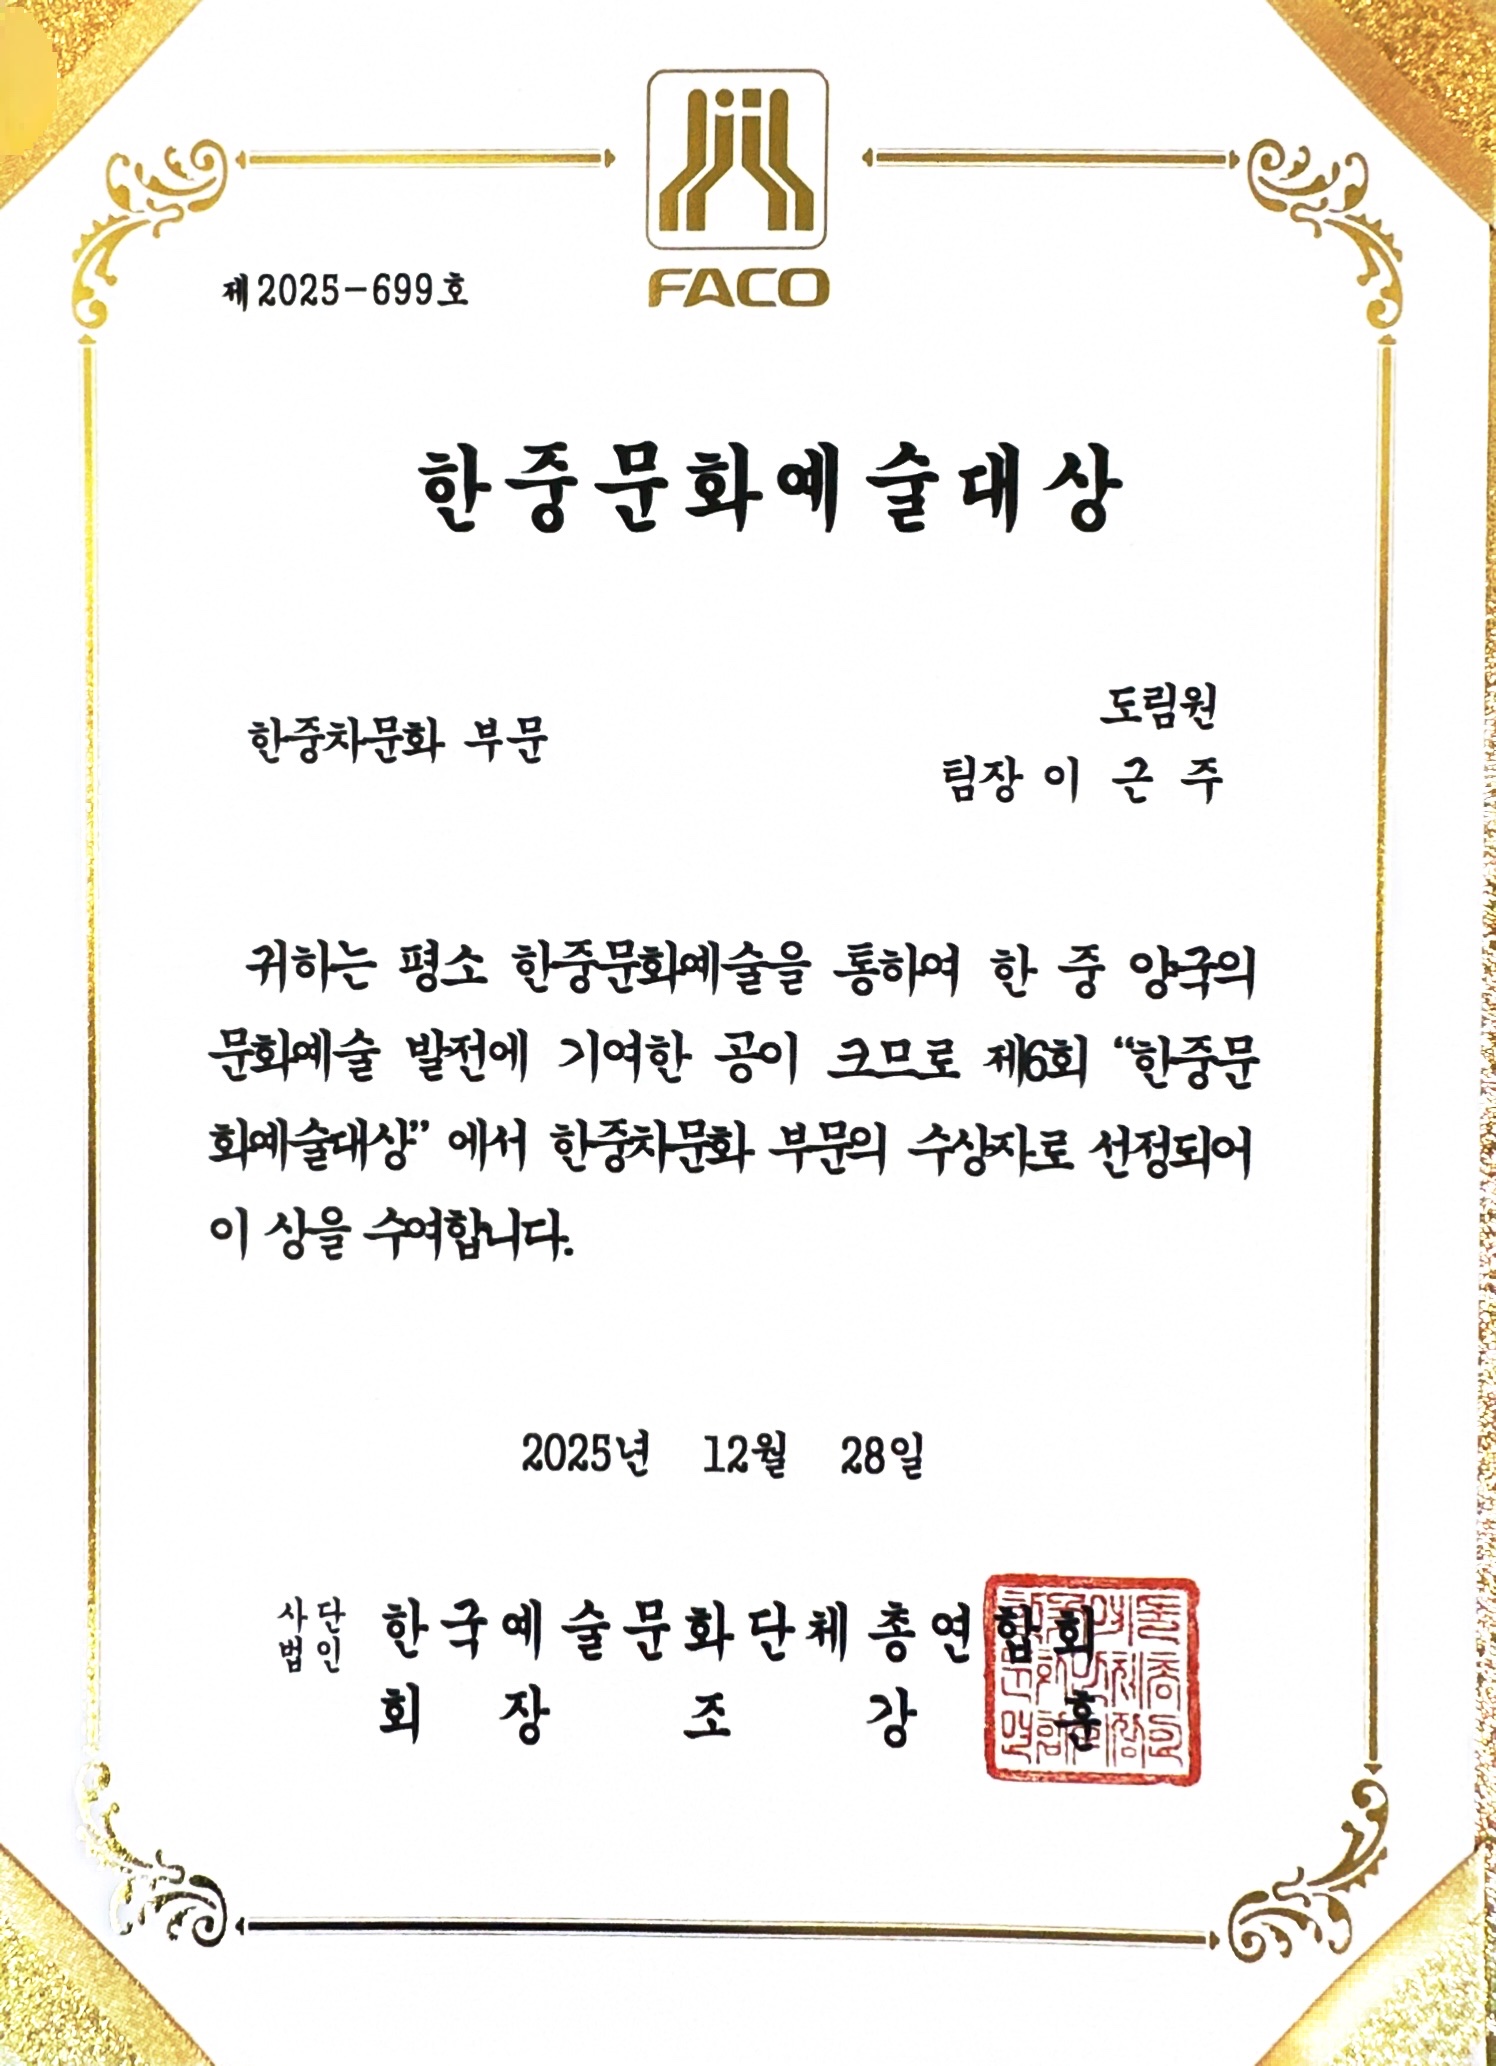 FACO
제2025-699호
한중문화예술대상
한중차문화 부문
도림원
팀장 이 근 주
귀하는 평소 한중문화예술을 통하여 한 중 양국의
문화예술 발전에 기여한 공이 크므로 제6회 “한중문
화예술대상” 에서 한중차문화 부문의 수상자로 선정되어
이 상을 수여합니다.
2025년 12월 28일
사단
법인 한국예술문화단체총연합회
회 장 조 강 훈